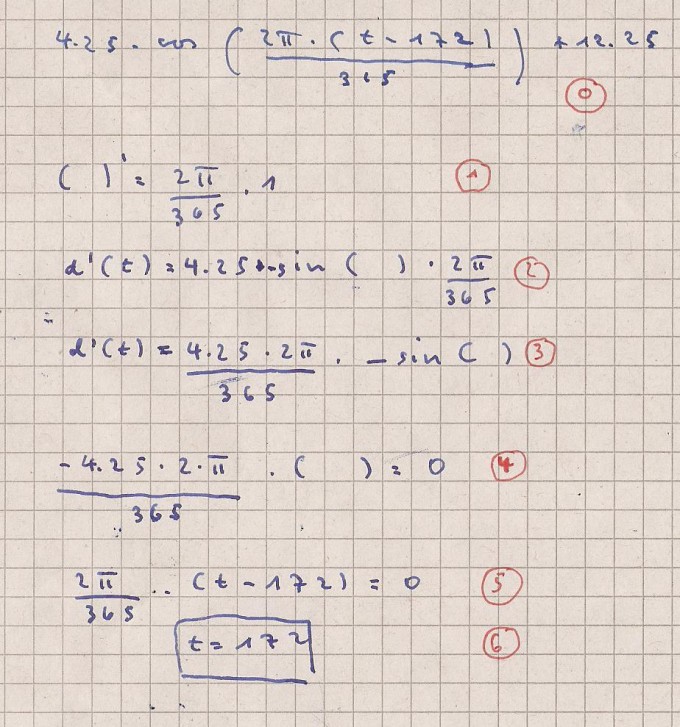 4.25 · cos ( 2π · (t - 172) / 365 ) + 12.25
0
( )' = 2π / 365 · 1 1
d'(t) = 4.25 · -sin ( ) · 2π / 365 2
d'(t) = 4.25 · 2π / 365 · -sin ( ) 3
-4.25 · 2 · π / 365 · ( ) = 0 4
2π / 365 · · (t - 172) = 0 5
t = 172 6